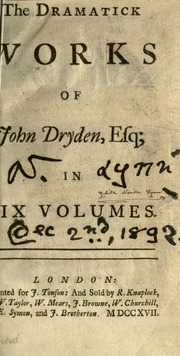 The DRAMATICK
WORKS
OF
John Dryden, Esq;
IN
IX VOLUMES.
Dec 2nd, 1892.
LONDON:
nted for J. Tonson: And Sold by R. Knaplock,
W. Taylor, W. Mears, J. Browne, W. Churchill,
E. Symon, and J. Brotherton. MDCCXVII.